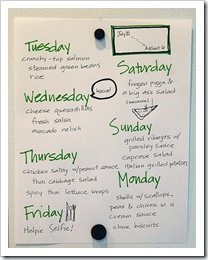 July 31
August 6
Tuesday
crunchy-top salmon
steamed green beans
rice
Wednesday
cheese quesadillas
fresh salsa
avocado relish
Thursday
chicken satay w/peanut sauce
thai cabbage salad
spicy thai lettuce wraps
Friday
Helpie Selfie!
Saturday
frozen pizza &
a big ass salad
Sunday
grilled ribeyes w/
parsley sauce
caprese salad
italian grilled potatoes
Monday
shells w/scallops,
peas & chives in a
cream sauce
chive biscuits